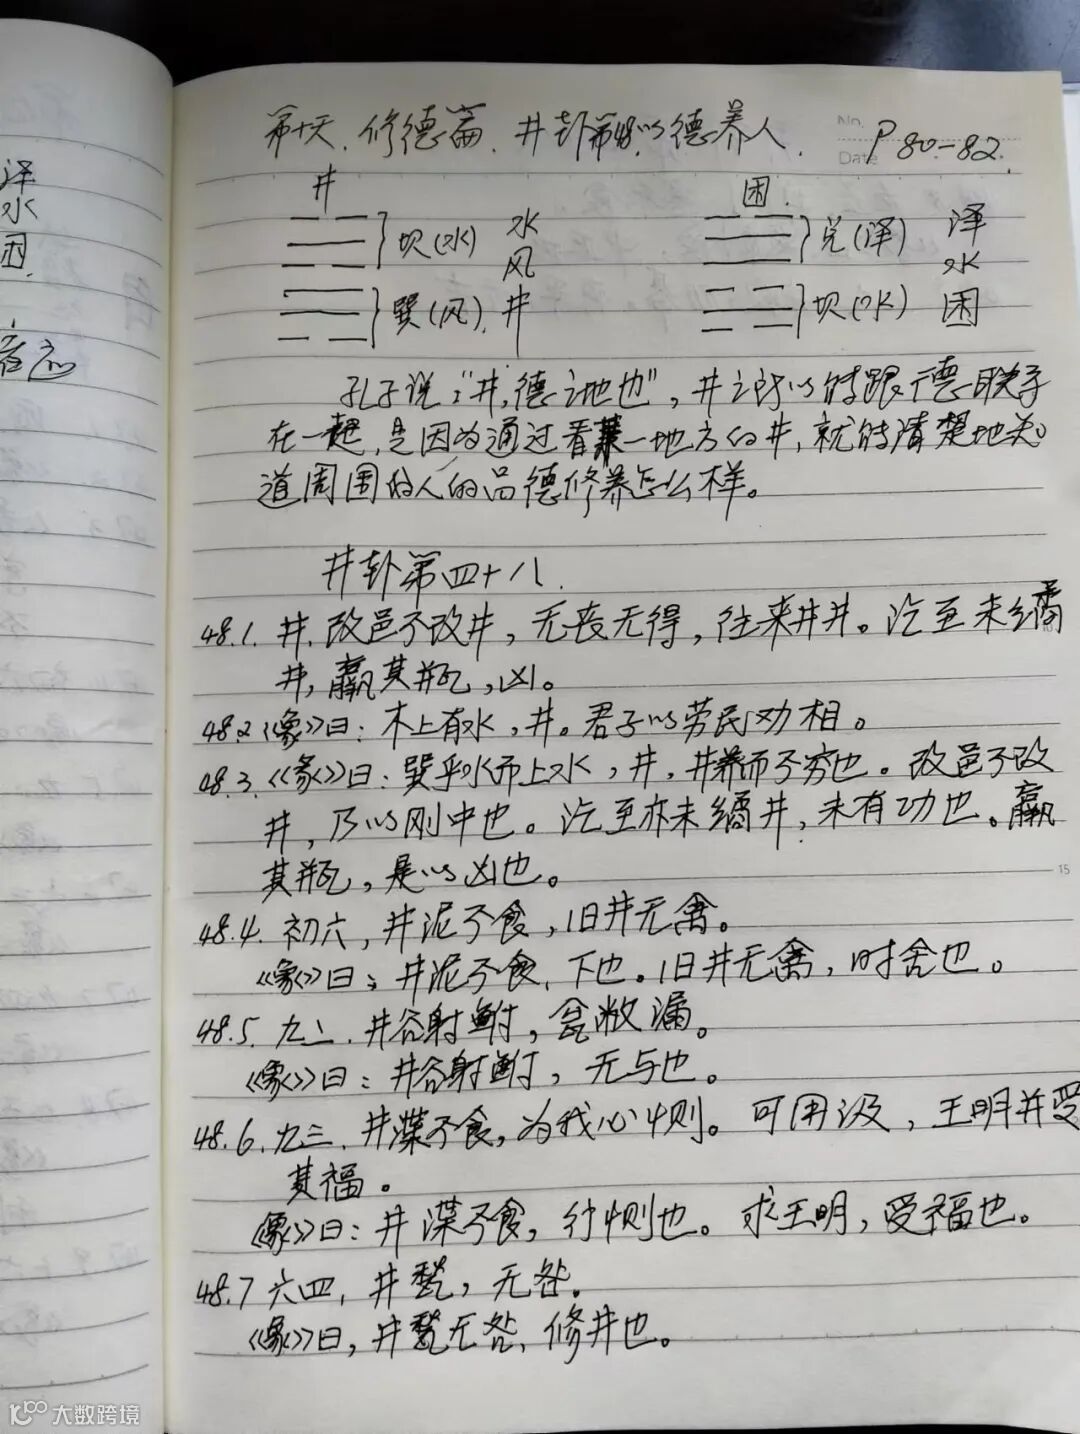 泽
水
困
第十天、修德篇、井卦第48、以德养人、
No.
Date
P80-82.
井
困.
坎(水) 水
风
巽(风) 井
兑(泽) 泽
水
坎(水) 困
孔子说:"井,德之地也",井之所以能跟德联系
在一起,是因为通过看某一地方的井,就能清楚地知
道周围的人的品德修养怎么样。
井卦第四十八.
48.1. 井,改邑不改井,无丧无得,往来井井。汔至未繘
井,羸其瓶,凶。
48.2《象》曰:木上有水,井。君子以劳民劝相。
48.3.《彖》曰:巽乎水而上水,井,井养而不穷也。改邑不改
井,乃以刚中也。汔至亦未繘井,未有功也。羸
其瓶,是以凶也。
48.4. 初六,井泥不食,旧井无禽。
《象》曰:井泥不食、下也。旧井无禽,时舍也。
48.5. 九二、井谷射鲋,瓮敝漏。
《象》曰:井谷射鲋,无与也。
48.6. 九三、井渫不食,为我心恻。可用汲,王明并受
其福。
《象》曰:井渫不食,行恻也。求王明,受福也。
48.7 六四,井甃,无咎。
《象》曰,井甃无咎、修井也。
15
大数跨境